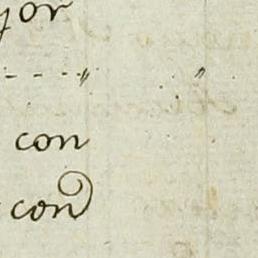 jor
----〃 . 〃 .
con
con